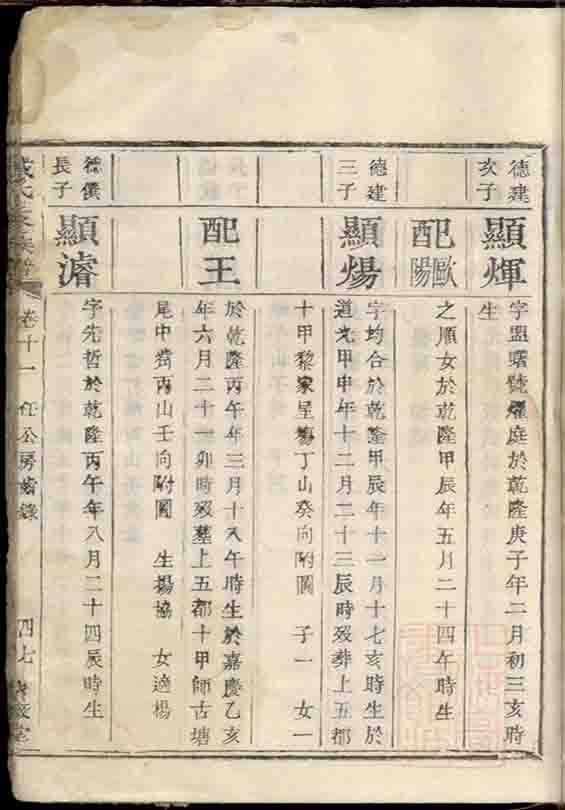 德建
次子
顯煇
字盟曙號燿庭於乾隆庚子年二月初三亥時
生
配歐陽
之順女於乾隆甲辰年五月二十四午時生
德建
三子
顯煬
字均合於乾隆甲辰年十一月十七亥時生於
道光甲申年十二月二十三辰時歿葬上五都
十甲黎家呈塲丁山癸向附圖 子一 女一
配王
於乾隆丙午年三月十八午時生於嘉慶乙亥
年六月二十一卯時歿墓上五都十甲師古塘
尾中丙山壬向附圖 生揚協 女適楊
德僎
長子
顯濬
字先哲於乾隆丙午年八月二十四辰時生
氏族譜
卷十一 任公房齒錄
四七 堂